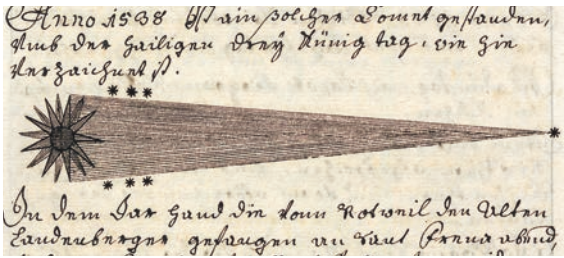 Anno 1538 Ist ain solcher Comet gestanden,
Vmb der hailigen drey Künig tag, wie hie
Verzaichnet ist.
In dem Jar hand die vonn Rotweil den Alten
Landenberger gefangen an sant Frena abend,